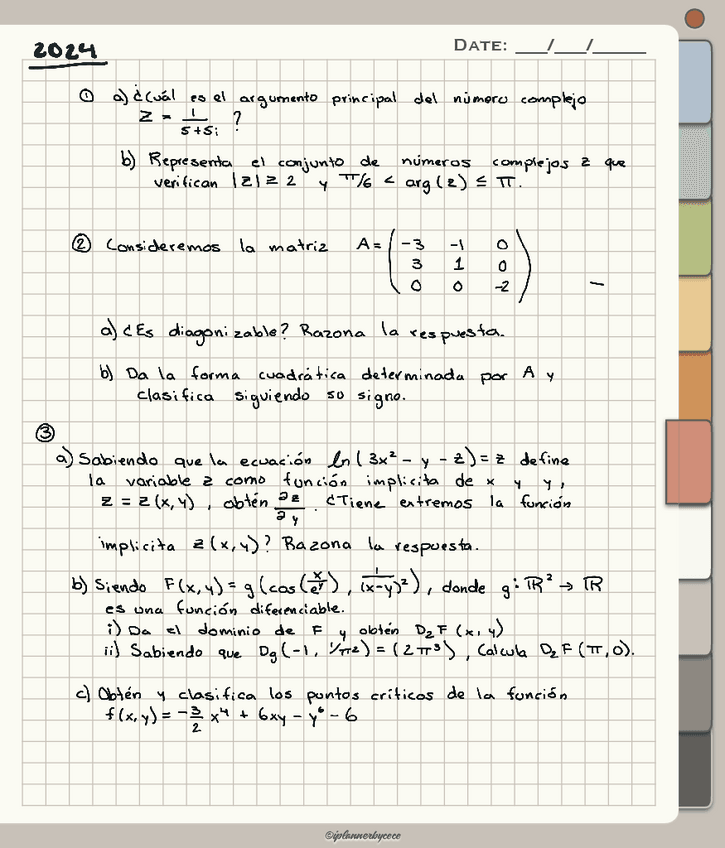 2024
DATE: ___/___/_____
① a) ¿Cuál es el argumento principal del número complejo
z = 1/(5+5i) ?
b) Representa el conjunto de números complejos z que
verifican |z| ≥ 2 y π/6 < arg(z) ≤ π.
② Consideremos la matriz A = ( -3 -1 0
3 1 0
0 0 -2 )
a) ¿Es diagonizable? Razona la respuesta.
b) Da la forma cuadrática determinada por A y
clasifica siguiendo so signo.
③
a) Sabiendo que la ecuación ln(3x² - y - z) = z define
la variable z como función implicita de x y y,
z = z(x,y), obtén ∂z/∂y. ¿Tiene extremos la función
implicita z(x,y)? Razona la respuesta.
b) Siendo F(x,y) = g(cos(x/e^y), 1/(x-y)²), donde g: ℝ² → ℝ
es una función diferenciable.
i) Da el dominio de F y obtén D₂F(x,y)
ii) Sabiendo que Dg(-1, 1/π²) = (2 π³), Calcula D₂F(π,0).
c) Obtén y clasifica los puntos críticos de la función
f(x,y) = -3/2 x⁴ + 6xy - y⁶ - 6
©iplannerbycece